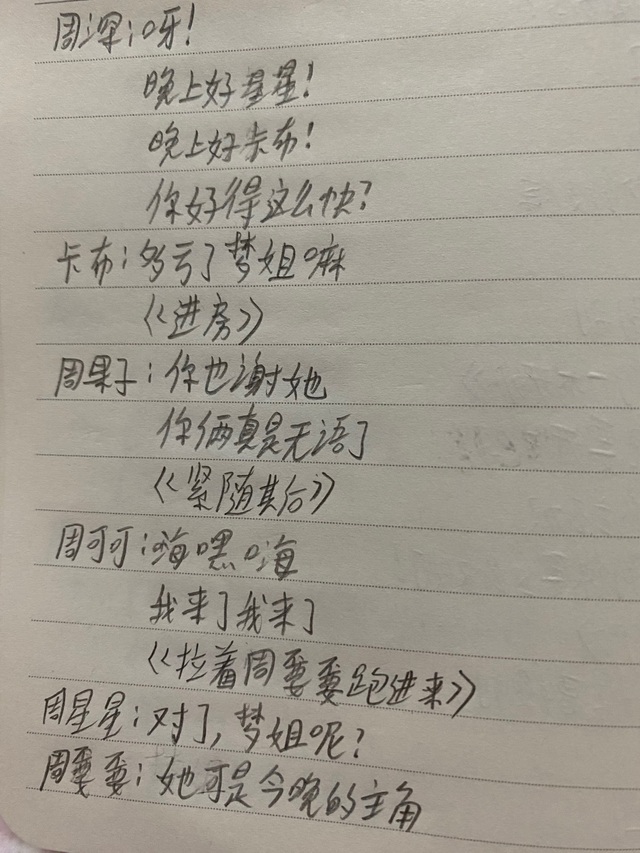 周深：呀！
晚上好星星！
晚上好卡布！
你好得这么快？
卡布：多亏了梦姐嘛
《进房》
周果子：你也谢她
你俩真是无语了
《紧随其后》
周可可：嗨嘿嗨
我来了我来了
《拉着周要要跑进来》
周星星：对了，梦姐呢？
周要要：她可是今晚的主角